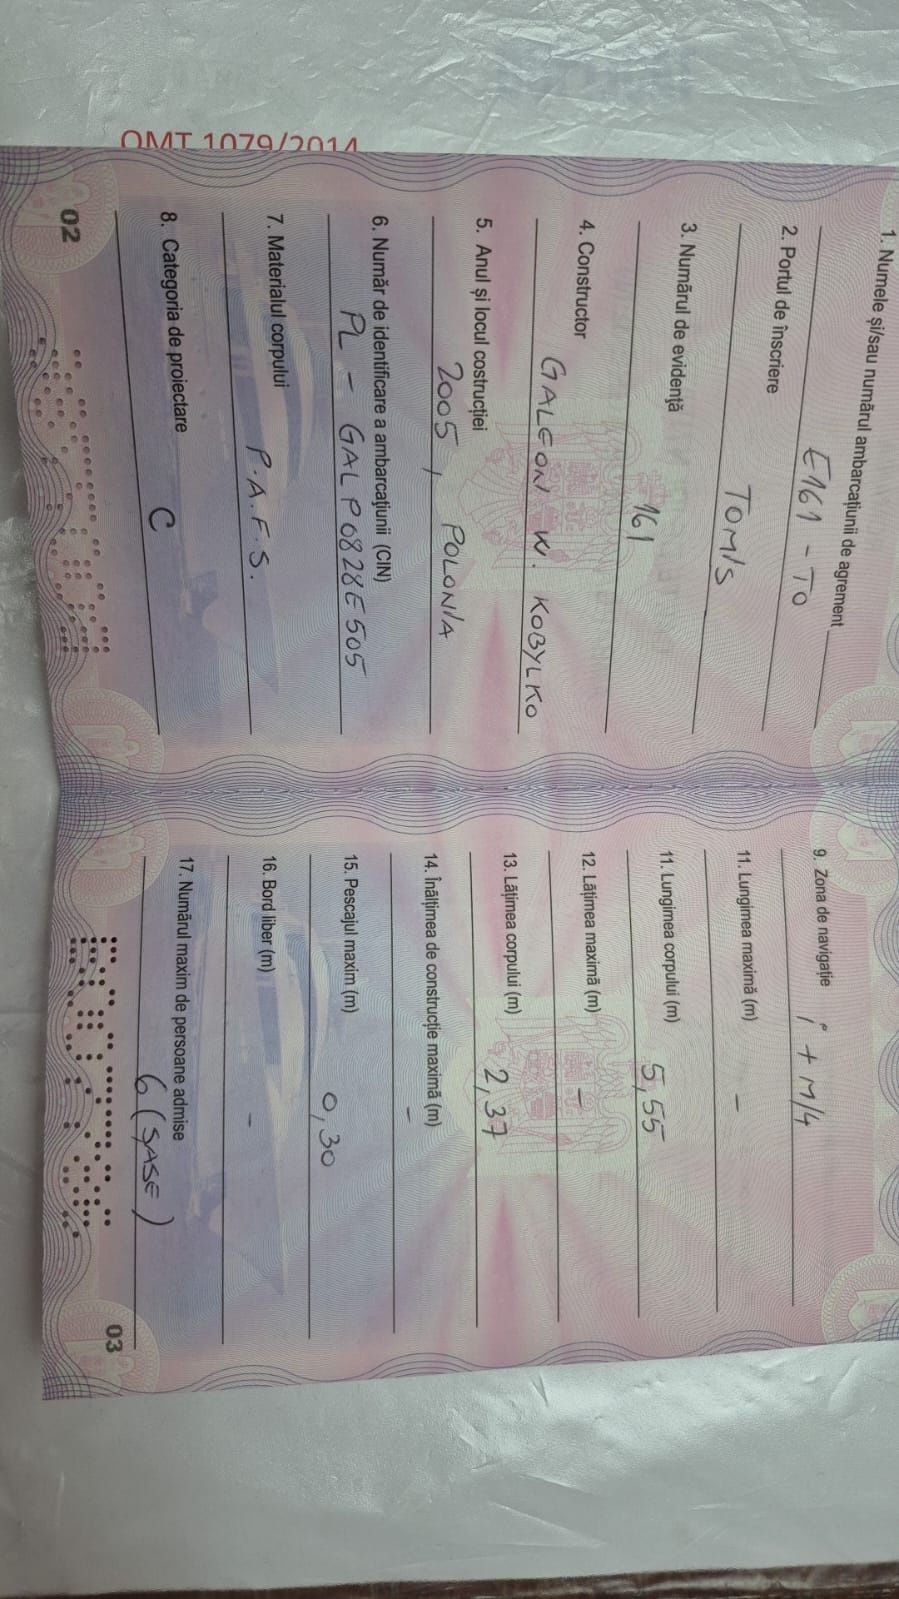 OMT 1079/2014
1. Numele și/sau numărul ambarcațiunii de agrement
E161 - TO
2. Portul de înscriere
TOMIS
3. Numărul de evidență
161
4. Constructor
GALEON W. KOBYLKO
5. Anul și locul costrucției
2005 / POLONIA
6. Număr de identificare a ambarcațiunii (CIN)
PL - GALP0828E505
7. Materialul corpului
P.A.F.S.
8. Categoria de proiectare
C
02
9. Zona de navigație
i + M/4
11. Lungimea maximă (m)
-
11. Lungimea corpului (m)
5,55
12. Lățimea maximă (m)
-
13. Lățimea corpului (m)
2,37
14. Înălțimea de construcție maximă (m)
-
15. Pescajul maxim (m)
0,30
16. Bord liber (m)
-
17. Numărul maxim de persoane admise
6 (ȘASE)
03